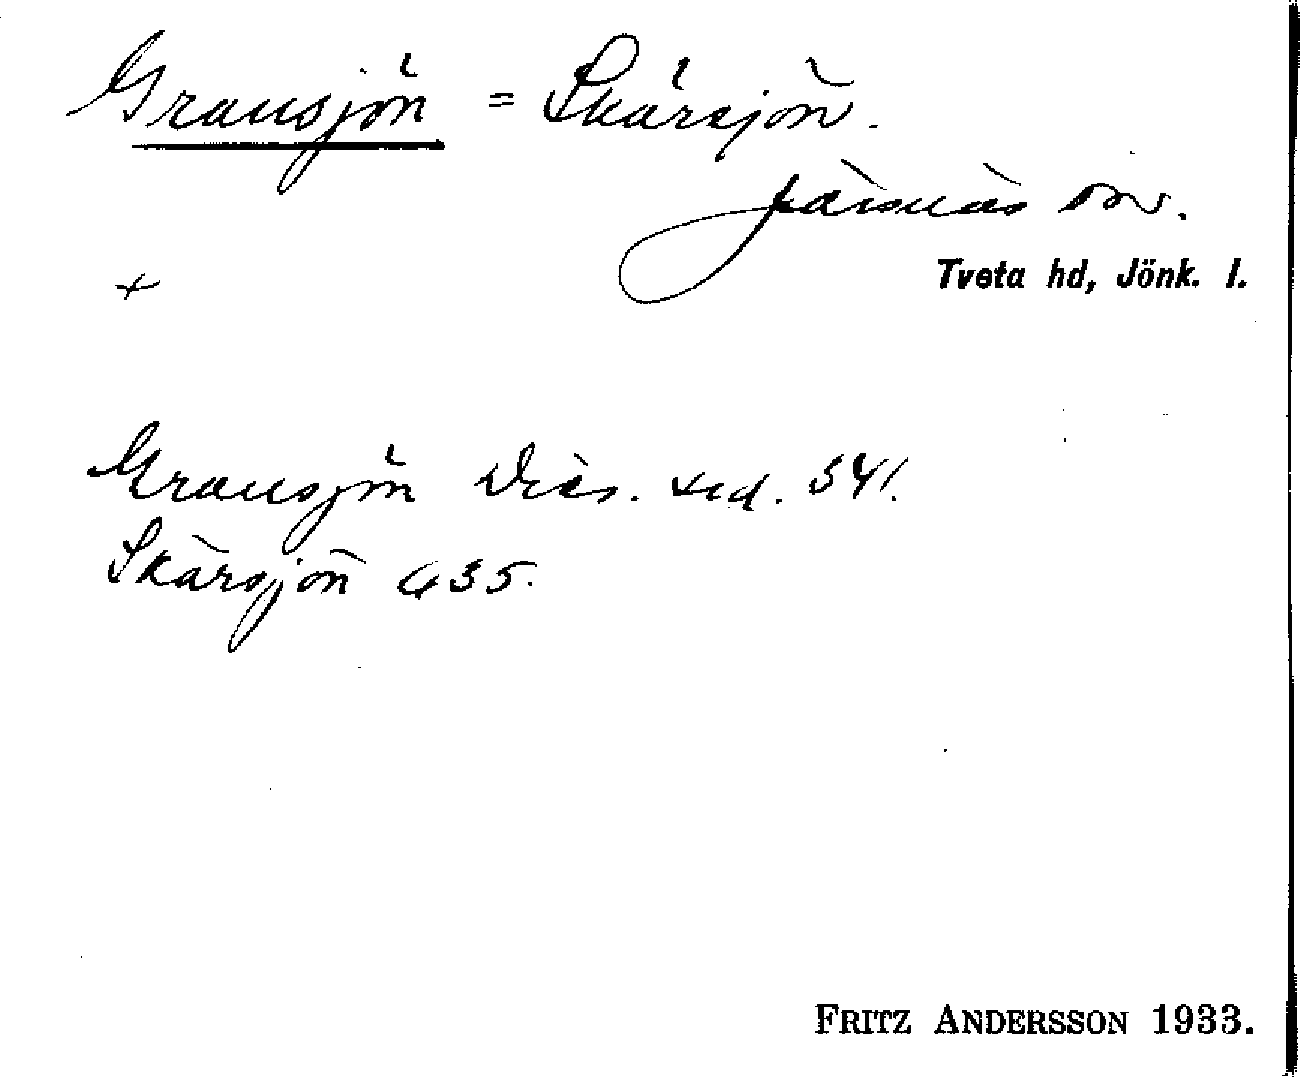 Gransjön = Skärsjön.
Järsnäs sn.
+
Tveta hd, Jönk. l.
Gransjön
Skärsjön 435.
FRITZ ANDERSSON 1933.